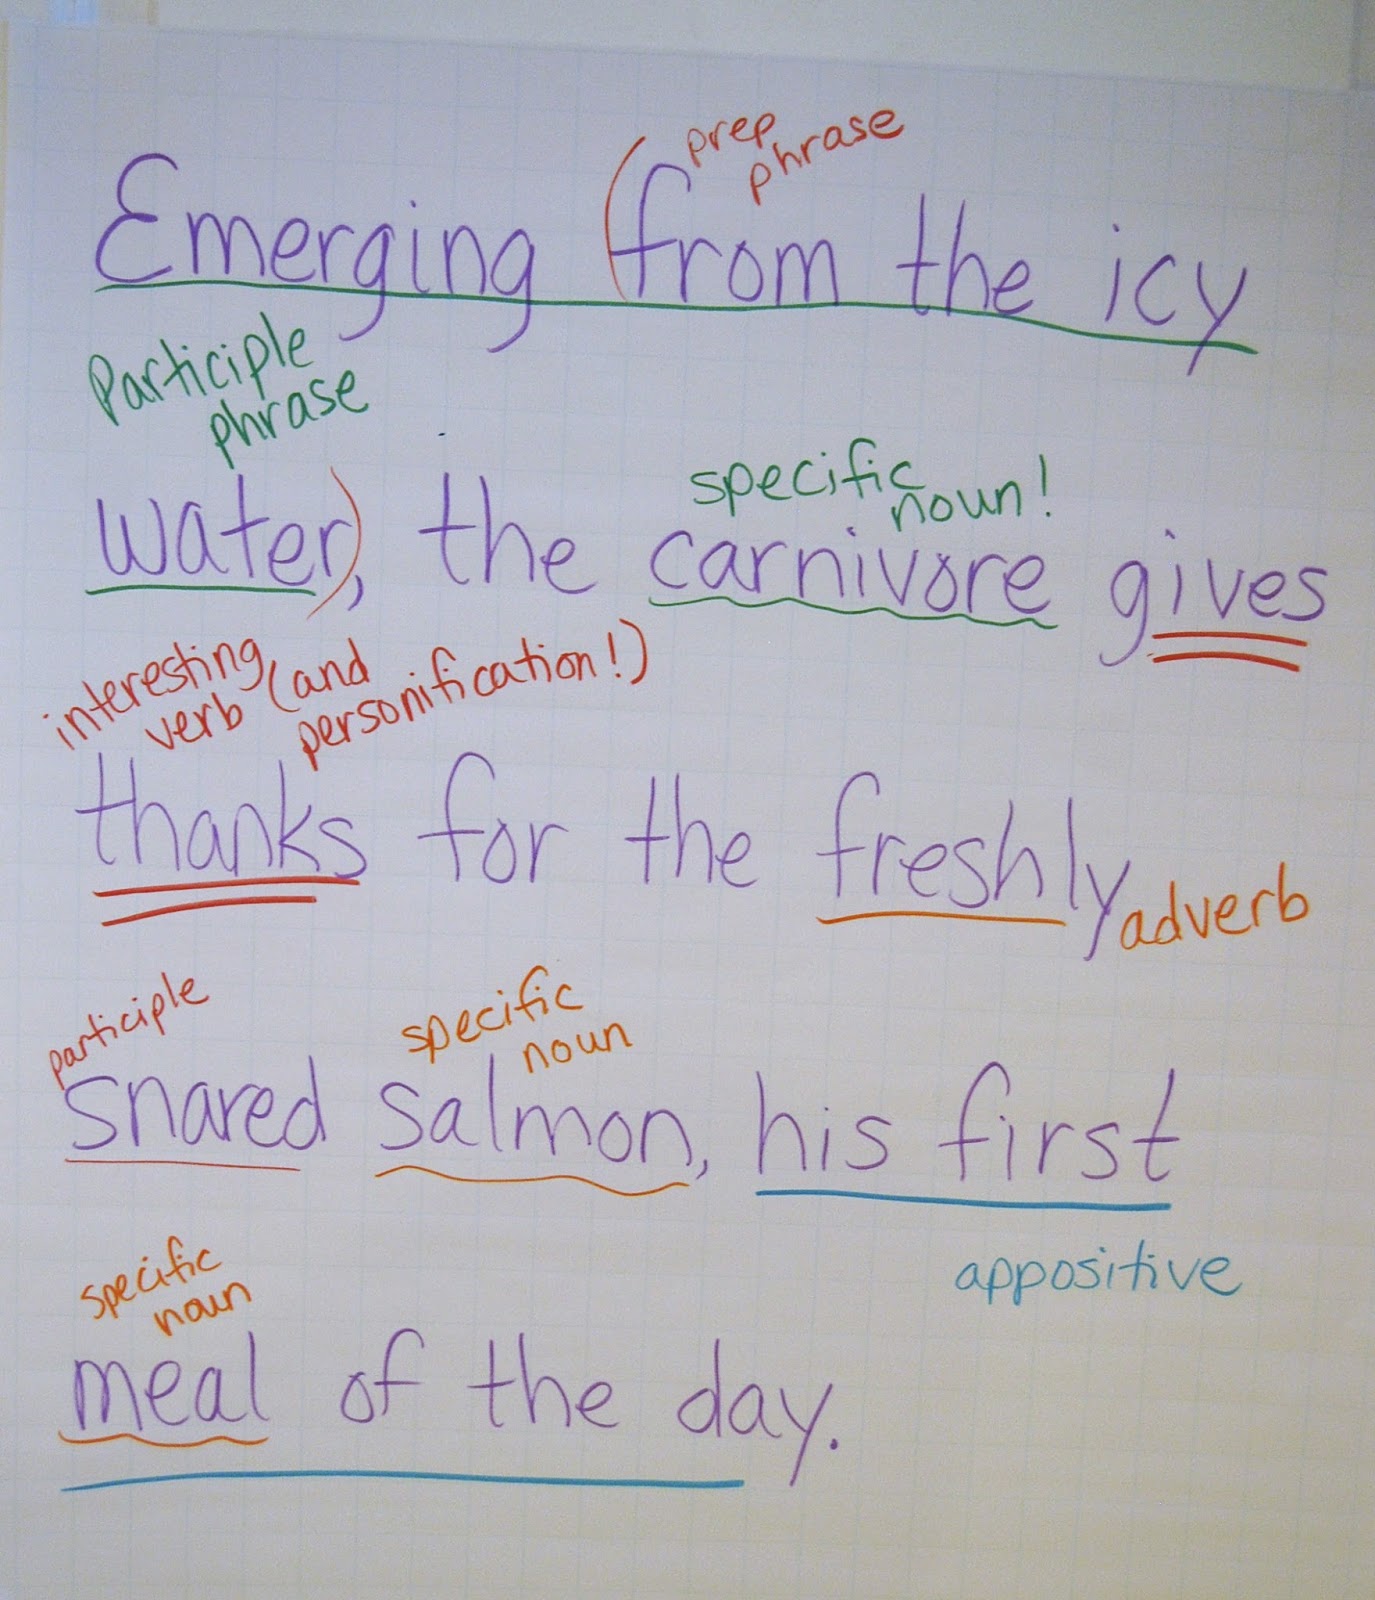 prep
phrase
Emerging (from the icy
Participle
phrase
specific
noun!
water), the carnivore gives
interesting
verb (and
personification!)
thanks for the freshly
adverb
participle
specific
noun
snared salmon, his first
appositive
specific
noun
meal of the day.